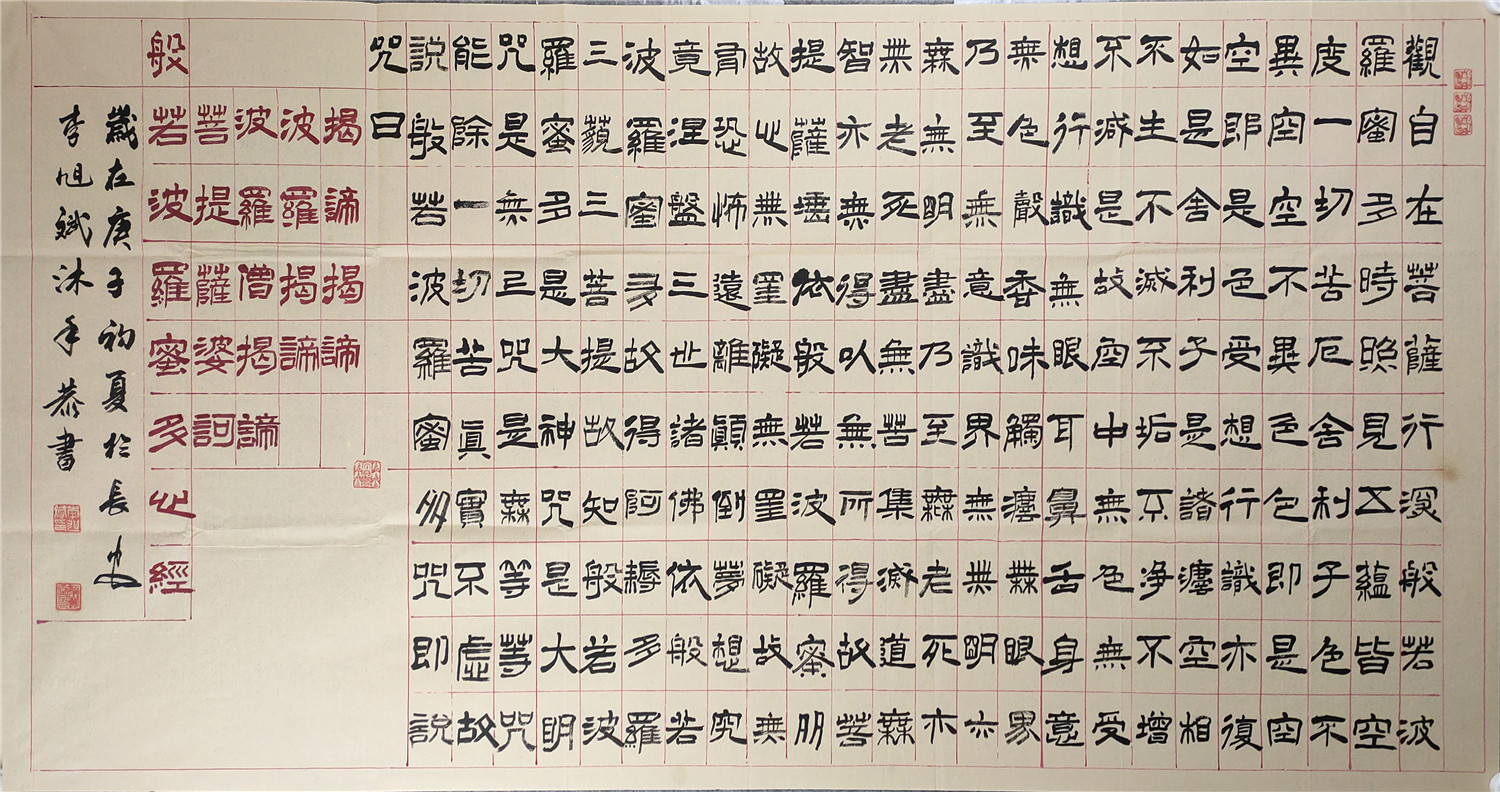 觀自在菩薩行深般若波
羅蜜多時照見五蘊皆空
度一切苦厄舍利子色不
異空空不異色色即是空
空即是色受想行識亦復
如是舍利子是諸法空相
不生不滅不垢不净不增
不減是故空中無色無受
想行識無眼耳鼻舌身意
無色聲香味觸法無眼界
乃至無意識界無無明亦
無無明盡乃至無老死亦
無老死盡無苦集滅道無
智亦無得以無所得故菩
提薩埵依般若波羅蜜多
故心無罣礙無罣礙故無
有恐怖遠離顛倒夢想究
竟涅盤三世諸佛依般若
波羅蜜多故得阿耨多羅
三藐三菩提故知般若波
羅蜜多是大神咒是大明
咒是無上咒是無等等咒
能除一切苦眞實不虛故
說般若波羅蜜多咒即說
咒曰
揭諦揭諦
波羅揭諦
波羅僧揭諦
菩提薩婆訶
般若波羅蜜多心經
歲在庚子初夏於長安
李旭斌沐手恭書